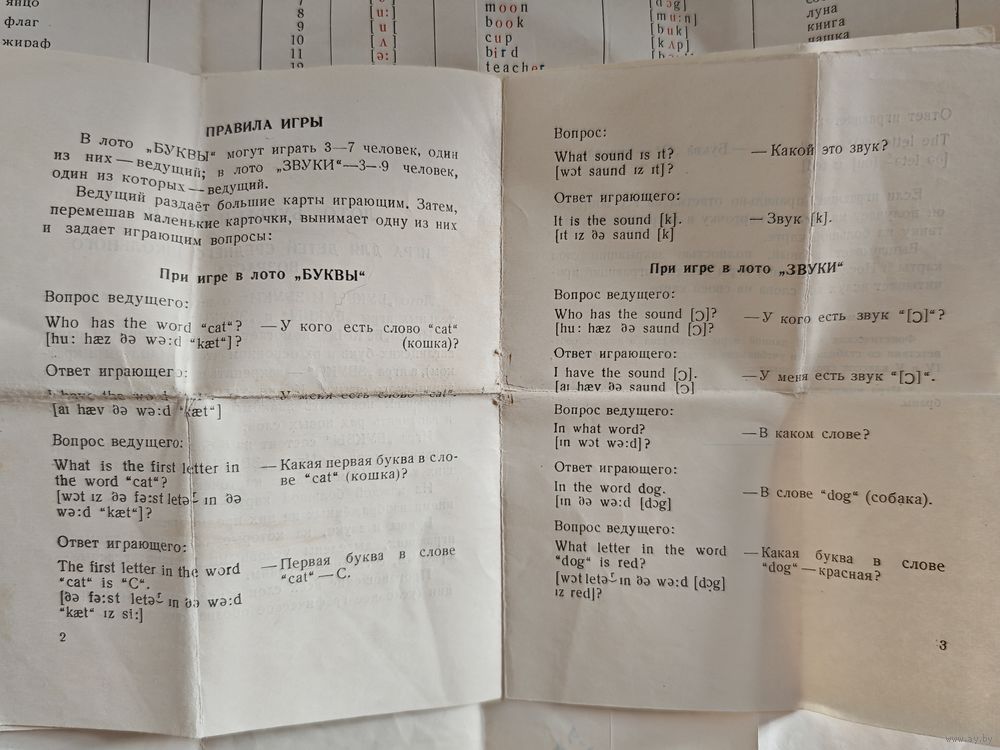 яйцо
флаг
жираф
7
8
9
10
11
[u:]
[u]
[ʌ]
[ə:]
moon
book
cup
bird
teacher
[dɔg]
[mu:n]
[buk]
[kʌp]
луна
книга
чашка
ПРАВИЛА ИГРЫ
В лото „БУКВЫ“ могут играть 3—7 человек, один
из них — ведущий; в лото „ЗВУКИ“—3—9 человек,
один из которых — ведущий.
Ведущий раздаёт большие карты играющим. Затем,
перемешав маленькие карточки, вынимает одну из них
и задает играющим вопросы:
При игре в лото „БУКВЫ“
Вопрос ведущего:
Who has the word “cat“? — У кого есть слово “cat“
[hu: hæz ðə wə:d “kæt“]? (кошка)?
Ответ играющего:
I have the word — У меня есть слово “cat“.
[aı hæv ðə wə:d “kæt“]
Вопрос ведущего:
What is the first letter in — Какая первая буква в сло-
the word “cat“? ве “cat“ (кошка)?
[wɔt ız ðə fə:st letə ın ðə
wə:d “kæt“]?
Ответ играющего:
The first letter in the word — Первая буква в слове
“cat“ is “C“. “cat“ — C.
[ðə fə:st letə ın ðə wə:d
“kæt“ ız si:]
2
Вопрос:
What sound ıs ıt? — Какой это звук?
[wɔt saund ız ıt]?
Ответ играющего:
It is the sound [k]. — Звук [k].
[ıt ız ðə saund [k]
При игре в лото „ЗВУКИ“
Вопрос ведущего:
Who has the sound [ɔ]? — У кого есть звук “[ɔ]“?
[hu: hæz ðə saund [ɔ]?
Ответ играющего:
I have the sound [ɔ]. — У меня есть звук “[ɔ]“.
[aı hæv ðə saund [ɔ]
Вопрос ведущего:
In what word? — В каком слове?
[ın wɔt wə:d]?
Ответ играющего:
In the word dog. — В слове “dog“ (собака).
[ın ðə wə:d [dɔg]
Вопрос ведущего:
What letter in the word — Какая буква в слове
“dog“ is red? “dog“ — красная?
[wɔt letə ın ðə wə:d [dɔg]
ız red]?
3
www.ay.by